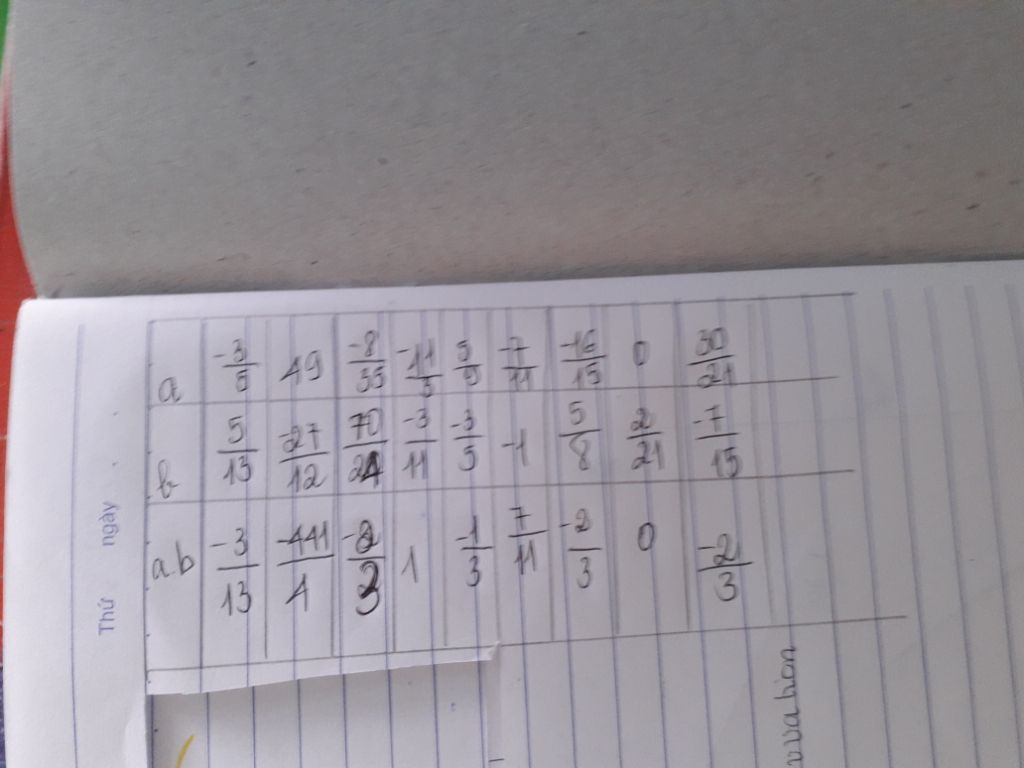 Thứ ngày
a -3/5 49 -8/35 -11/3 5/9 -7/11 -16/15 0 30/21
b 5/13 -27/12 70/24 -3/11 -3/5 -1 5/8 2/21 -7/15
ab -3/13 -441/4 -2/3 1 -1/3 7/11 -2/3 0 -2/3